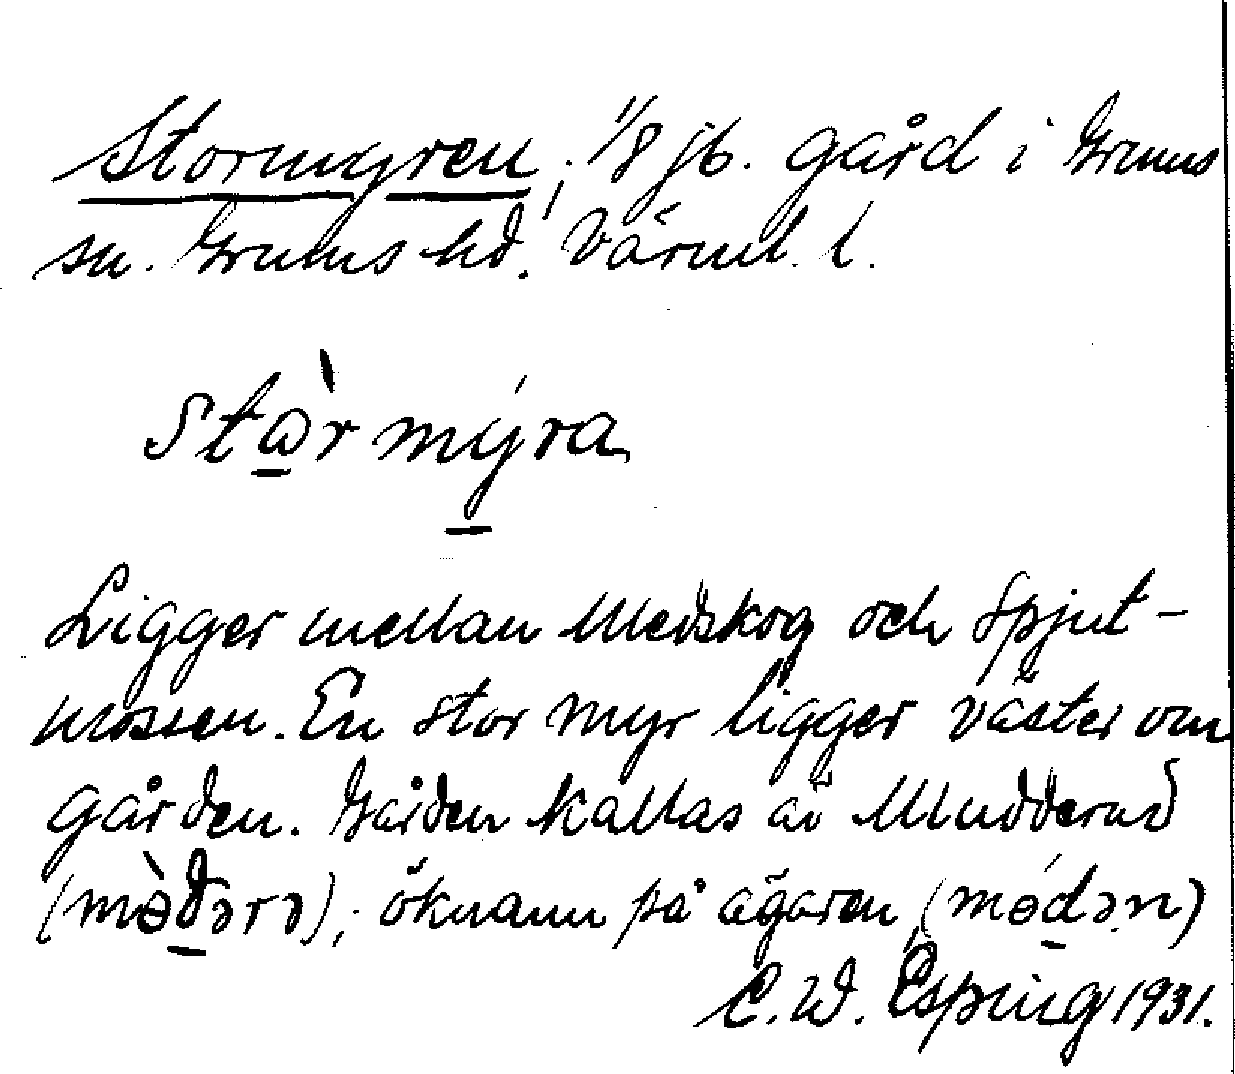 Stormyren, 1/8 jb. gård i Grums
sn. Grums hd. Värml. l.
stɷ̀r mýra
Ligger mellan Medskog och Spjut-
mossen. En stor myr ligger väster om
gården. Gården kallas äv Mudderud
(mɵ̀dərə); öknamn på ägaren (mɵ́dən)
C. W. Esping 1931.